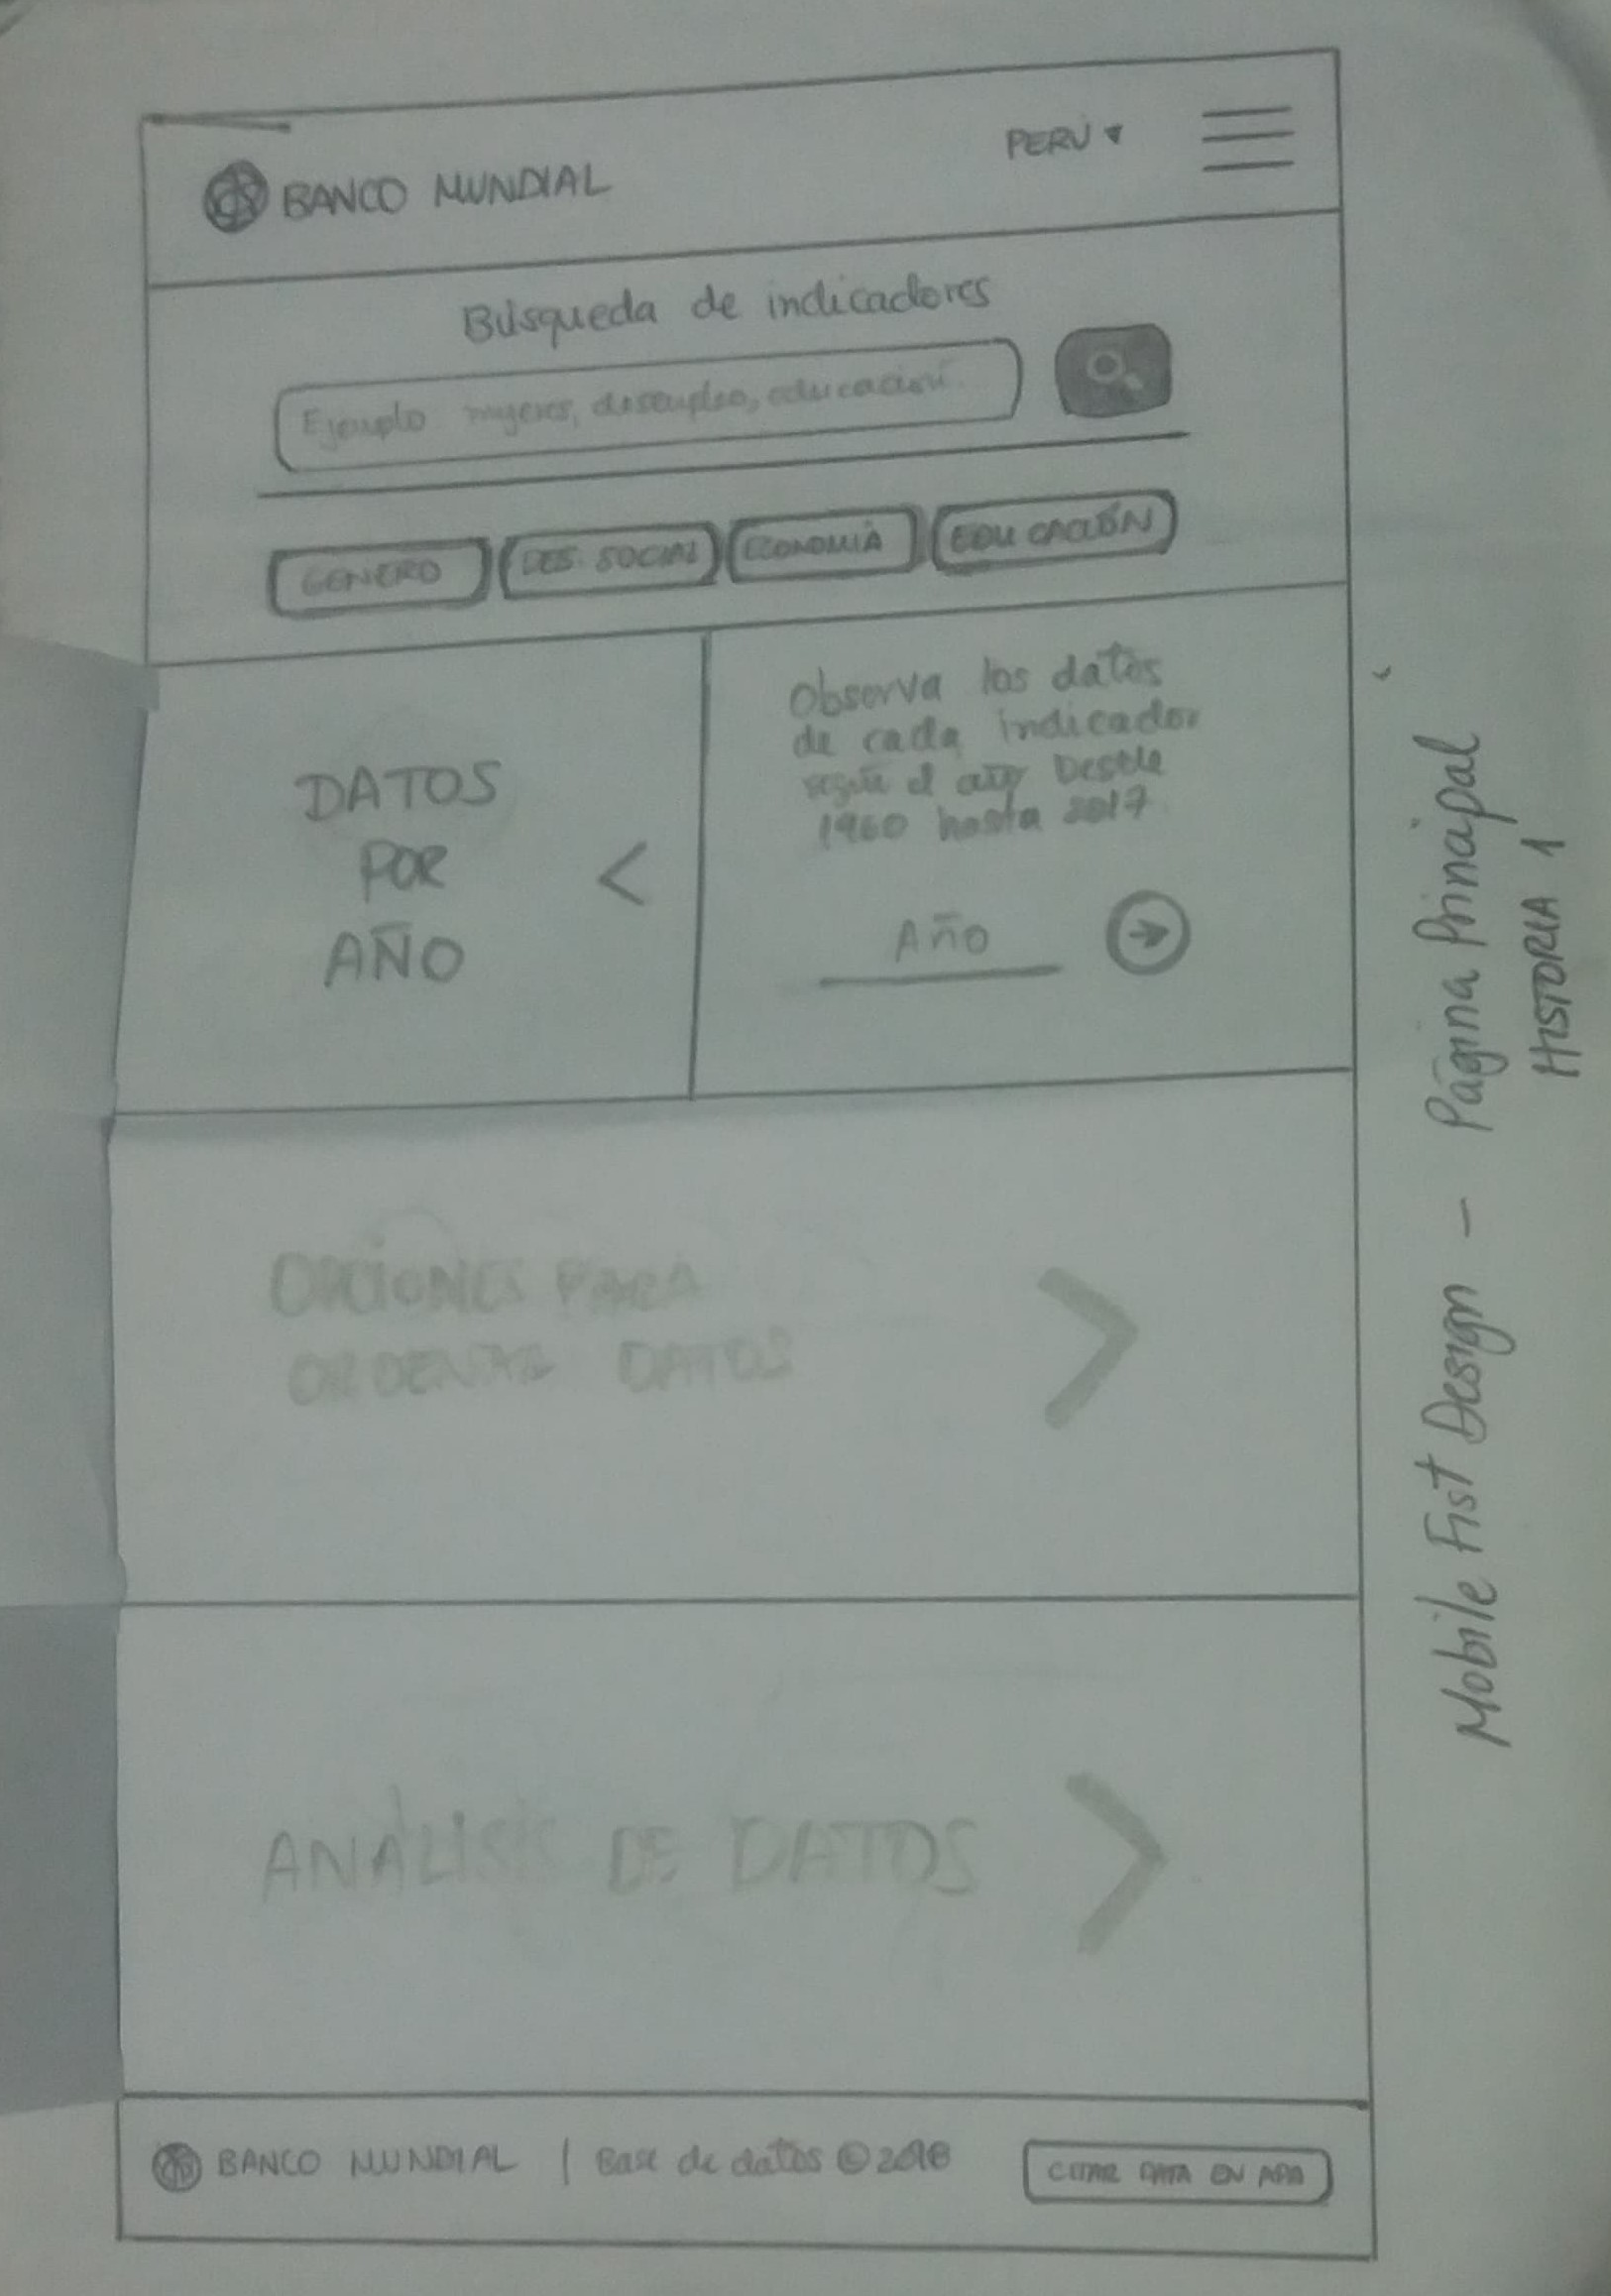 BANCO MUNDIAL
PERÚ ▼
Búsqueda de indicadores
Ejemplo mujeres, desempleo, educación
GENERO
DES. SOCIAL
ECONOMIA
EDUCACIÓN
DATOS
POR
AÑO
<
Observa los datos
de cada indicador
según el año Desde
1960 hasta 2017
Año
OPCIONES PARA
ORDENAR DATOS
ANÁLISIS DE DATOS
BANCO MUNDIAL | Base de datos © 2018
CITAR DATA EN APA
Mobile Fist Design - Página Principal
HISTORIA 1